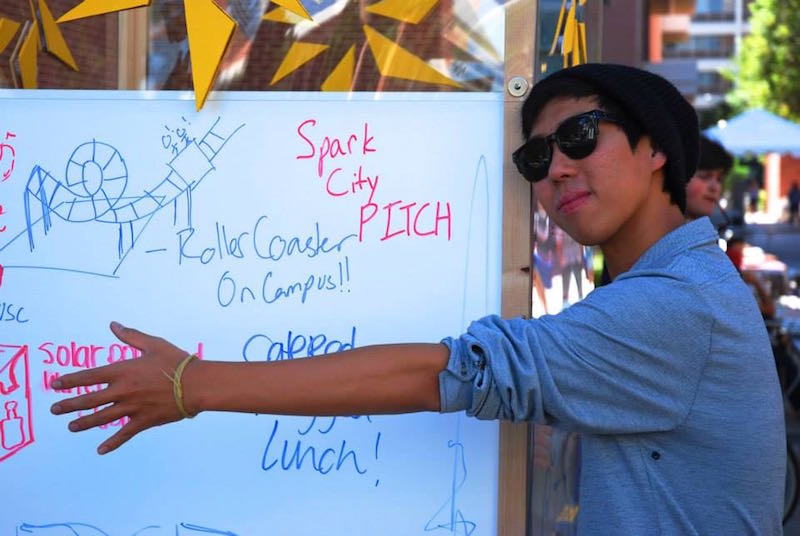 Spark
City
PITCH
- Roller Coaster
On Campus!!
USC
solar
catered
Lunch!